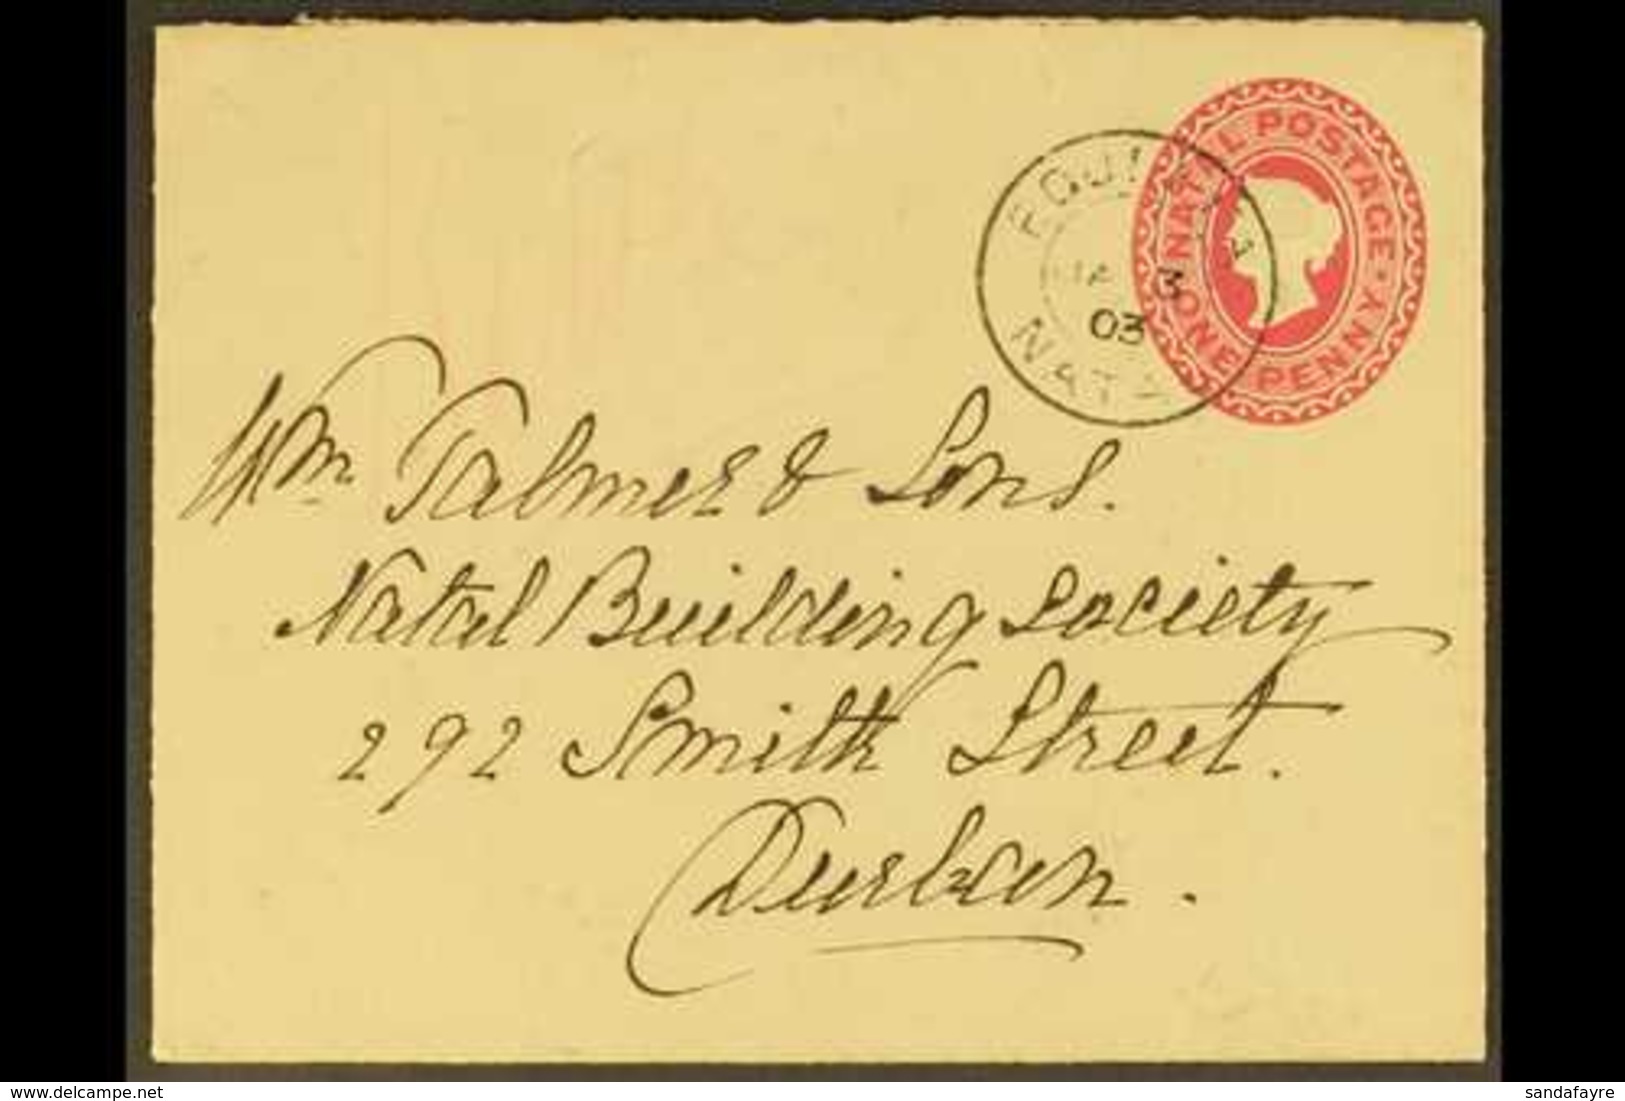 NATAL POSTAGE
ONE PENNY
3
03
Wm. Palmer & Sons.
Natal Building Society
292 Smith Street.
Durban.
delcampe.net
sandafayre